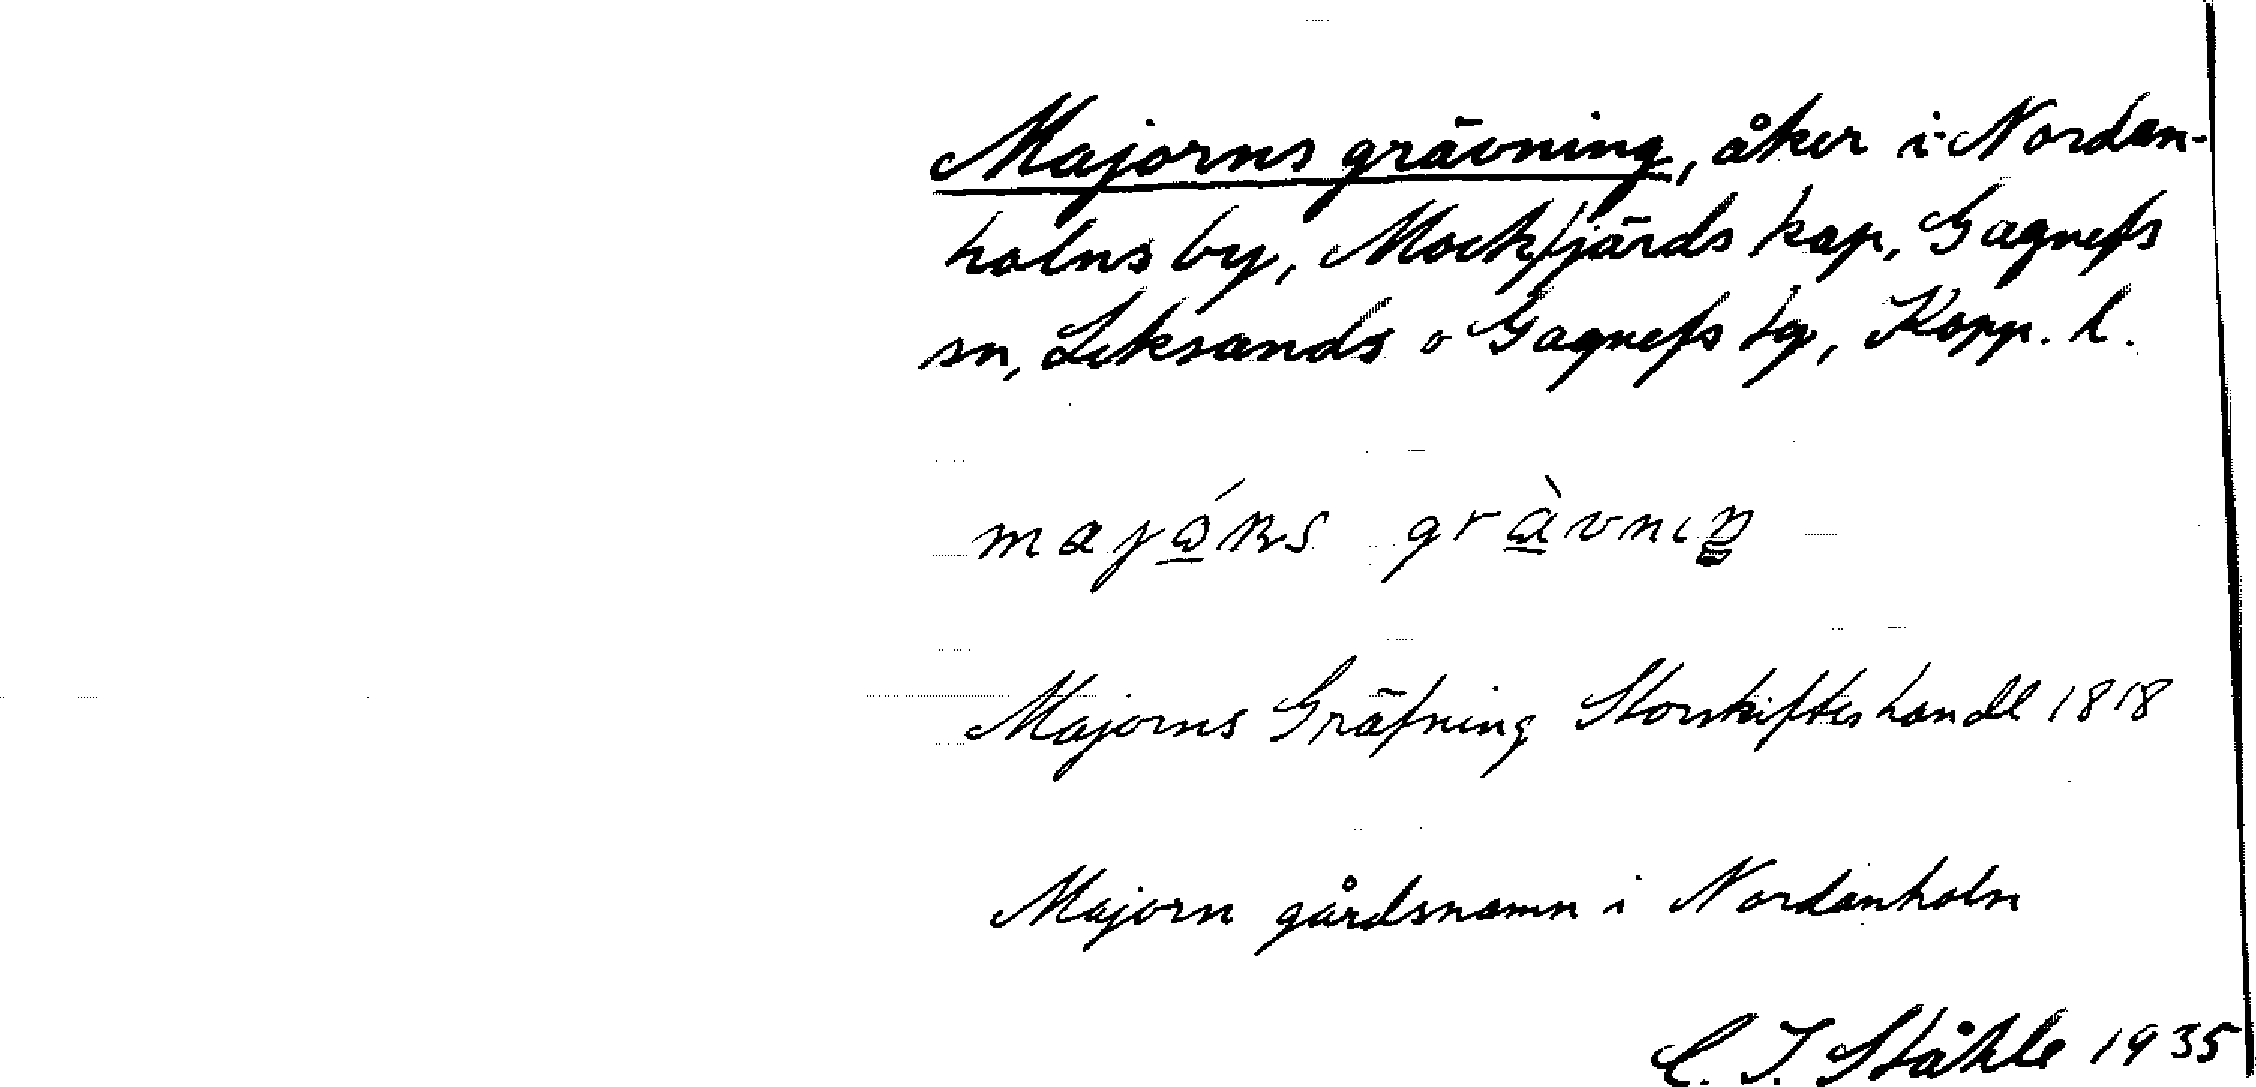 Majorns grävning, åker i Nordan-
holns by, Mockfjärds kap, Gagnefs
sn, Leksands o Gagnefs tg, Kopp. l.
Majorns Gräfning Storskifteshandl 1818
Majorn gårdsnamn i Nordanholn
C. I. Ståhle 1935